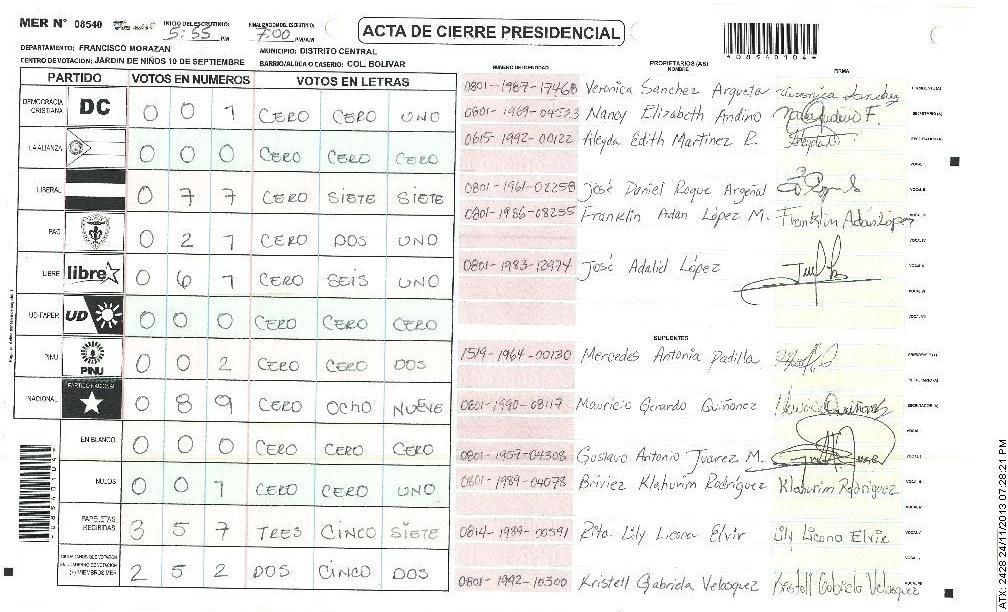 MER Nº 08540
INICIO DEL ESCRUTINIO: 5:55 PM
FINALIZACIÓN DEL ESCRUTINIO: 7:00 PM/AM
ACTA DE CIERRE PRESIDENCIAL
*08540104*
DEPARTAMENTO: FRANCISCO MORAZAN
MUNICIPIO: DISTRITO CENTRAL
CENTRO DE VOTACION: JARDIN DE NIÑOS 10 DE SEPTIEMBRE
BARRIO/ALDEA O CASERIO: COL BOLIVAR
PARTIDO VOTOS EN NUMEROS VOTOS EN LETRAS
DEMOCRACIA CRISTIANA DC 0 0 1 CERO CERO UNO
LA ALIANZA 0 0 0 CERO CERO CERO
LIBERAL 0 7 7 CERO SIETE SIETE
PAC 0 2 1 CERO DOS UNO
LIBRE libre 0 6 1 CERO SEIS UNO
UD-FAPER UD 0 0 0 CERO CERO CERO
PINU PINU 0 0 2 CERO CERO DOS
NACIONAL PARTIDO NACIONAL 0 8 9 CERO OCHO NUEVE
EN BLANCO 0 0 0 CERO CERO CERO
NULOS 0 0 1 CERO CERO UNO
PAPELETAS RECIBIDAS 3 5 7 TRES CINCO SIETE
CIUDADANOS QUE VOTARON EN CUADERNO DE VOTACION (+) MIEMBROS MER 2 5 2 DOS CINCO DOS
NUMERO DE IDENTIDAD PROPIETARIOS (AS) NOMBRE FIRMA
0801-1987-17468 Veronica Sanchez Argueta Veronica Sanchez PRESIDENTE (A)
0801-1969-04523 Nancy Elizabeth Andino SECRETARIO (A)
0615-1992-00122 Aleyda Edith Martinez R. ESCRUTADOR (A)
VOCAL I
0801-1961-02258 José Daniel Roque Argeñal VOCAL II
0801-1986-08255 Franklin Adan López M. Franklin Adán López VOCAL III
VOCAL IV
0801-1983-12974 José Adalid López VOCAL V
VOCAL VI
VOCAL VII
SUPLENTES
1519-1964-00130 Mercedes Antonia Padilla PRESIDENTE (A)
SECRETARIO (A)
0801-1990-08117 Mauricio Gerardo Quiñonez ESCRUTADOR (A)
VOCAL I
0801-1957-04308 Gustavo Antonio Juarez M. VOCAL II
0801-1989-04078 Briviez Klahurim Rodríguez Klahurim Rodríguez VOCAL III
VOCAL IV
0814-1989-00591 Rita Lily Licona Elvir Lily Licona Elvir VOCAL V
0801-1992-10300 Kristell Gabriela Velasquez Kristell Gabriela Velasquez VOCAL VII
*08540104*
ATX: 2428 24/11/2013 07:28:21 PM